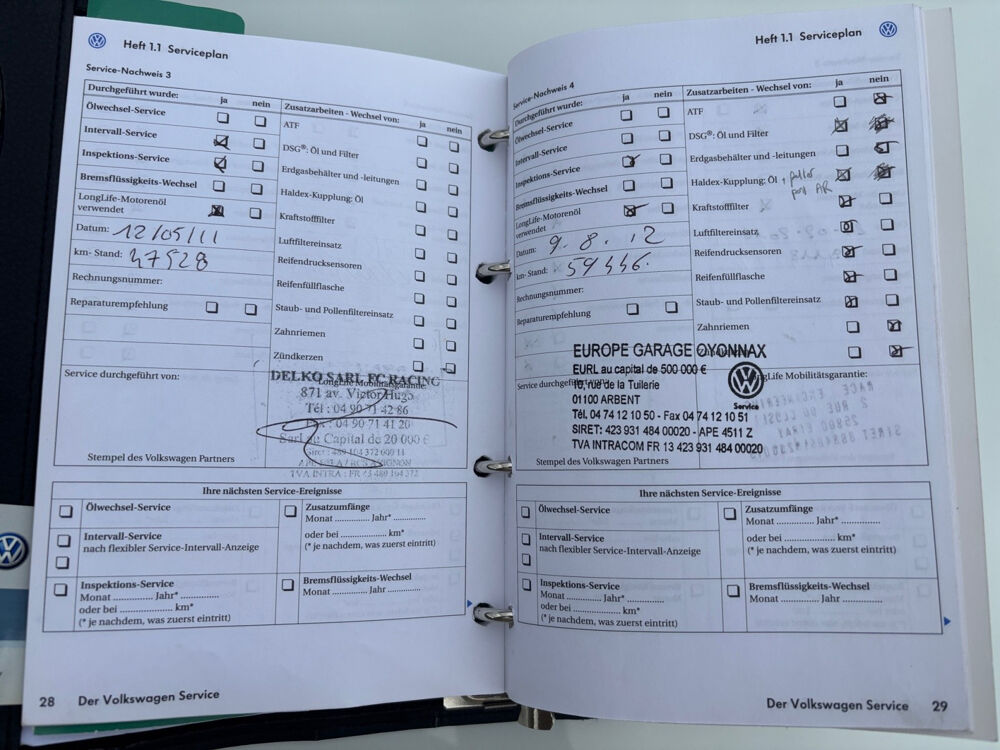 Heft 1.1 Serviceplan
Service-Nachweis 3
Durchgeführt wurde:
ja nein
Ölwechsel-Service
Intervall-Service
Inspektions-Service
Bremsflüssigkeits-Wechsel
LongLife-Motorenöl
verwendet
Datum: 12/05/11
km- Stand: 47528
Rechnungsnummer:
Reparaturempfehlung
Service durchgeführt von:
Stempel des Volkswagen Partners
Zusatzarbeiten - Wechsel von:
ja nein
ATF
DSG®: Öl und Filter
Erdgasbehälter und -leitungen
Haldex-Kupplung: Öl
Kraftstofffilter
Luftfiltereinsatz
Reifendrucksensoren
Reifenfüllflasche
Staub- und Pollenfiltereinsatz
Zahnriemen
Zündkerzen
LongLife Mobilitätsgarantie:
DELKO SARL FC RACING
871 av. Victor Hugo
Tél : 04 90 71 42 86
Fax : 04 90 71 41 20
Sarl au Capital de 20 000 €
Ihre nächsten Service-Ereignisse
Ölwechsel-Service
Intervall-Service
nach flexibler Service-Intervall-Anzeige
Inspektions-Service
Monat ............. Jahr* .............
oder bei .................... km*
(* je nachdem, was zuerst eintritt)
Zusatzumfänge
Monat ............. Jahr* .............
oder bei .................... km*
(* je nachdem, was zuerst eintritt)
Bremsflüssigkeits-Wechsel
Monat ............. Jahr .............
28 Der Volkswagen Service
Heft 1.1 Serviceplan
Service-Nachweis 4
Durchgeführt wurde:
ja nein
Ölwechsel-Service
Intervall-Service
Inspektions-Service
Bremsflüssigkeits-Wechsel
LongLife-Motorenöl
verwendet
Datum: 9.8.12
km- Stand: 59446.
Rechnungsnummer:
Reparaturempfehlung
Service durchgeführt von:
Stempel des Volkswagen Partners
Zusatzarbeiten - Wechsel von:
ja nein
ATF
DSG®: Öl und Filter
Erdgasbehälter und -leitungen
Haldex-Kupplung: Öl
Kraftstofffilter
Luftfiltereinsatz
Reifendrucksensoren
Reifenfüllflasche
Staub- und Pollenfiltereinsatz
Zahnriemen
LongLife Mobilitätsgarantie:
EUROPE GARAGE OYONNAX
EURL au capital de 500 000 €
10, rue de la Tuilerie
01100 ARBENT
Tél. 04 74 12 10 50 - Fax 04 74 12 10 51
SIRET: 423 931 484 00020 - APE 4511 Z
TVA INTRACOM FR 13 423 931 484 00020
Service
Ihre nächsten Service-Ereignisse
Ölwechsel-Service
Intervall-Service
nach flexibler Service-Intervall-Anzeige
Inspektions-Service
Monat ............. Jahr* .............
oder bei .................... km*
(* je nachdem, was zuerst eintritt)
Zusatzumfänge
Monat ............. Jahr* .............
oder bei .................... km*
(* je nachdem, was zuerst eintritt)
Bremsflüssigkeits-Wechsel
Monat ............. Jahr .............
Der Volkswagen Service 29